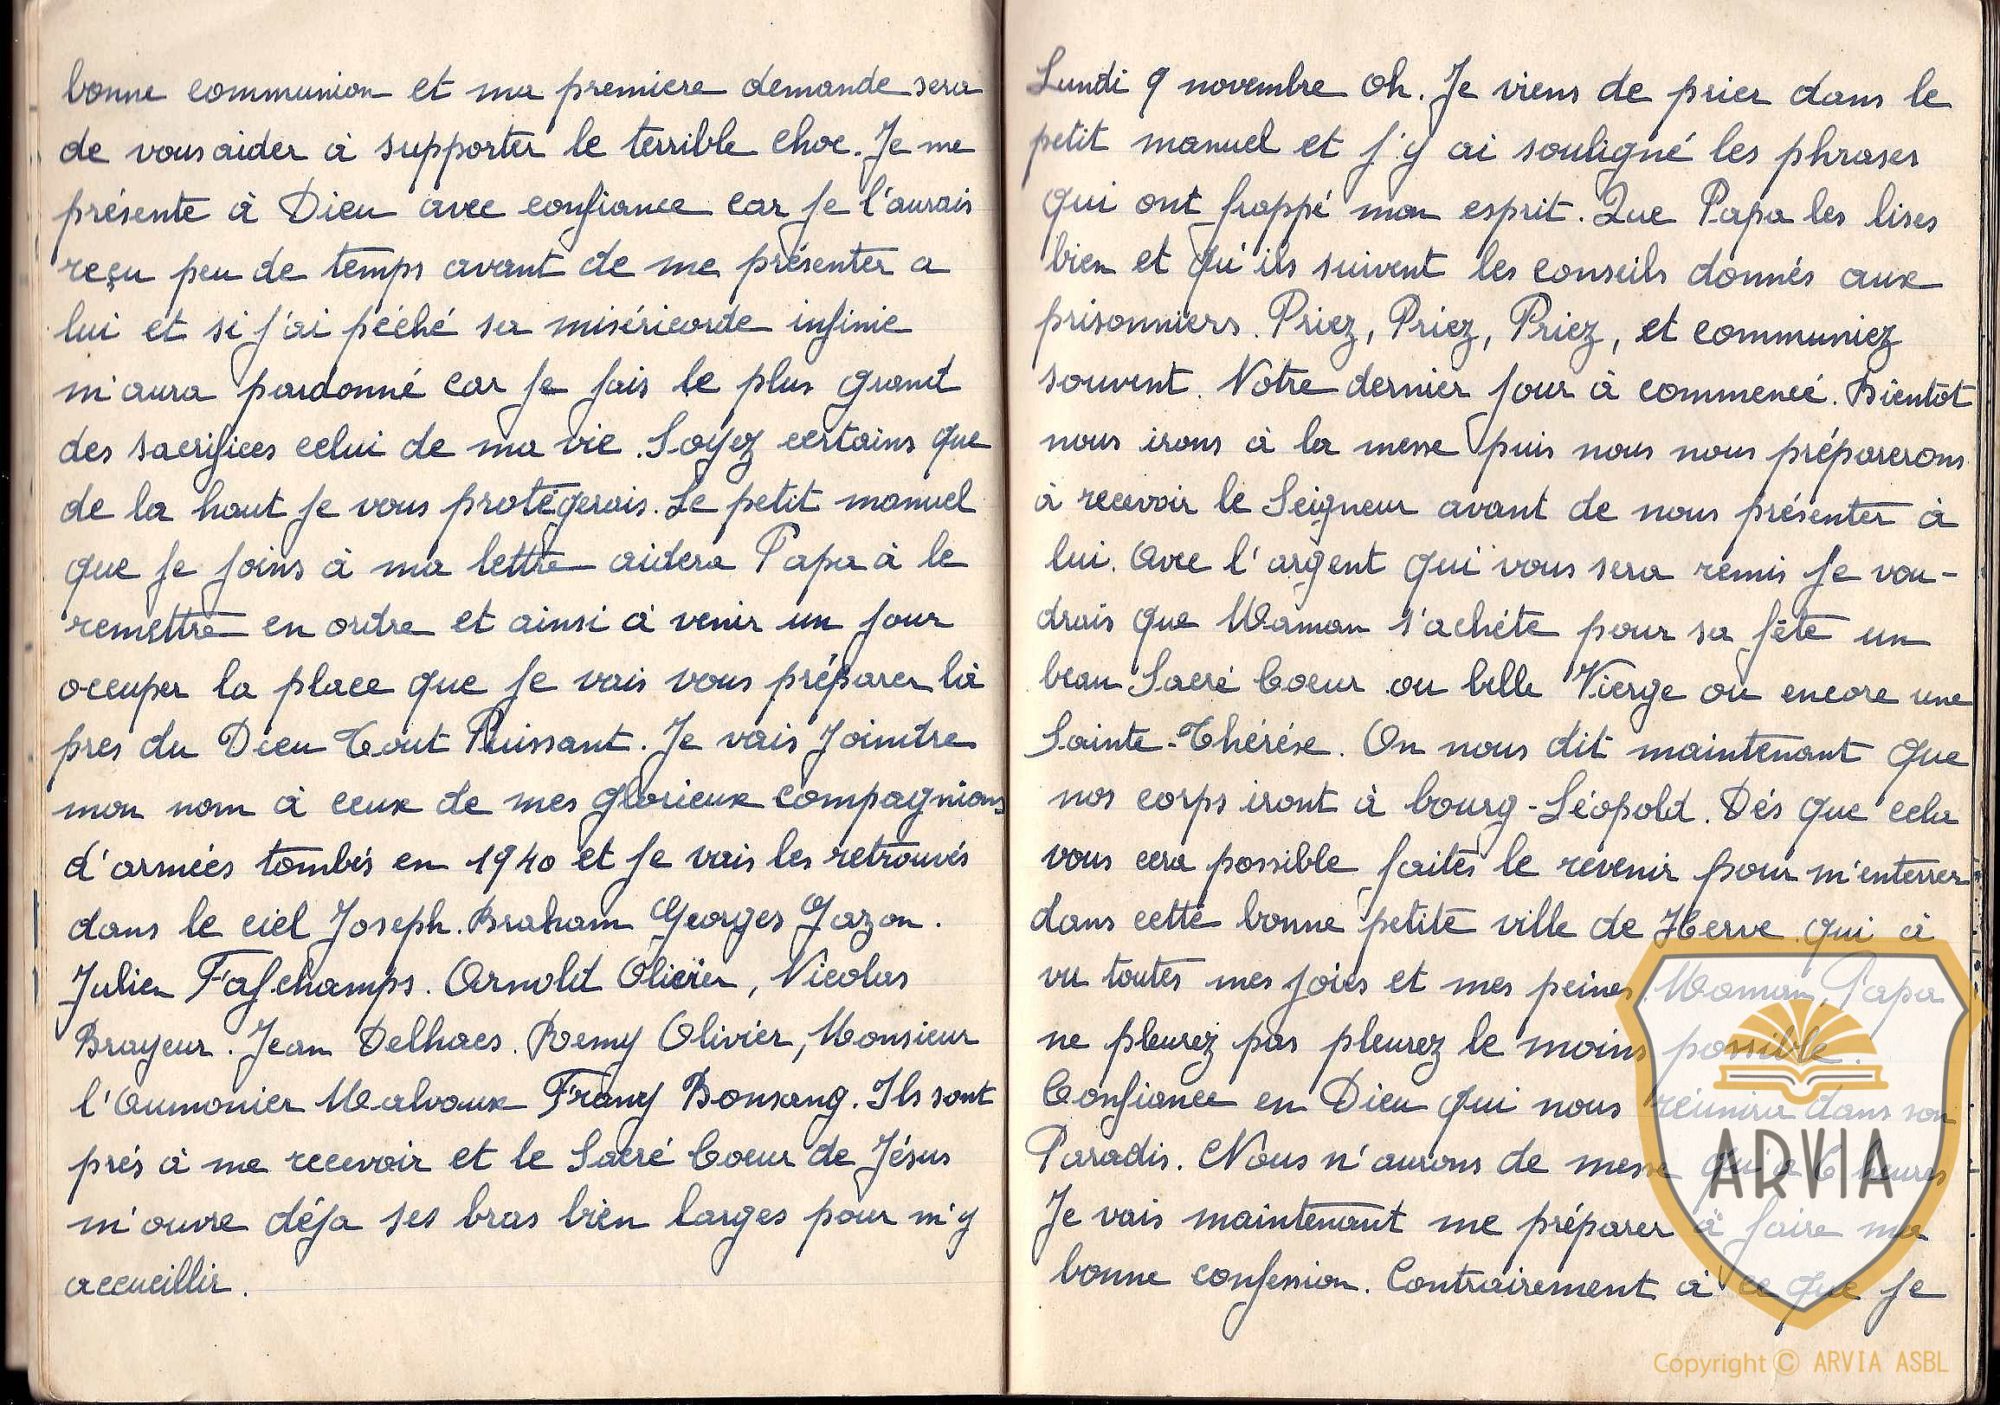 bonne communion et ma premiere demande sera
de vous aider à supporter le terrible choc. Je me
présente à Dieu avec confiance car je l'aurais
reçu peu de temps avant de me présenter a
lui et si j'ai péché sa miséricorde infinie
m'aura pardonné car je fais le plus grand
des sacrifices celui de ma vie. Soyez certains que
de la haut je vous protégerais. Le petit manuel
que je joins à ma lettre aidera Papa à le
remettre en ordre et ainsi à venir un jour
occuper la place que je vais vous préparer là
pres du Dieu Tout Puissant. Je vais Joindre
mon nom à ceux de mes glorieux compagnions
d'armées tombés en 1940 et je vais les retrouvés
dans le ciel Joseph. Braham Georges Gazon.
Julien Fafchamps. Arnold Olivier, Nicolas
Brayeur. Jean Delhaes. Remy Olivier, Monsieur
l'Aumonier Malvaux Frany Bonsang. Ils sont
prés à me recevoir et le Sacré Coeur de Jésus
m'ouvre déja ses bras bien larges pour m'y
accueillir.
Lundi 9 novembre 0h. Je viens de prier dans le
petit manuel et j'y ai souligné les phrases
qui ont frappé mon esprit. Que Papa les lises
bien et qu'ils suivent les conseils donnés aux
prisonniers. Priez, Priez, Priez, et communiez
souvent. Notre dernier jour à commencé. Bientot
nous irons à la messe puis nous nous préparerons
à recevoir le Seigneur avant de nous présenter à
lui. Avec l'argent qui vous sera remis je vou-
drais que Maman s'achéte pour sa fête un
beau Sacré Coeur ou belle Vierge ou encore une
Sainte-Thérése. On nous dit maintenant que
nos corps iront à bourg-Léopold. Dés que cela
vous cera possible faites le revenir pour m'enterrer
dans cette bonne petite ville de Herve qui à
vu toutes mes joies et mes peines. Maman, Papa
ne pleurez pas pleurez le moins possible.
Confiance en Dieu qui nous réunira dans son
Paradis. Nous n'aurons de messe qu'a 6 heures
Je vais maintenant me préparer à faire ma
bonne confession. Contrairement à ce que je
ARVIA
Copyright © ARVIA ASBL